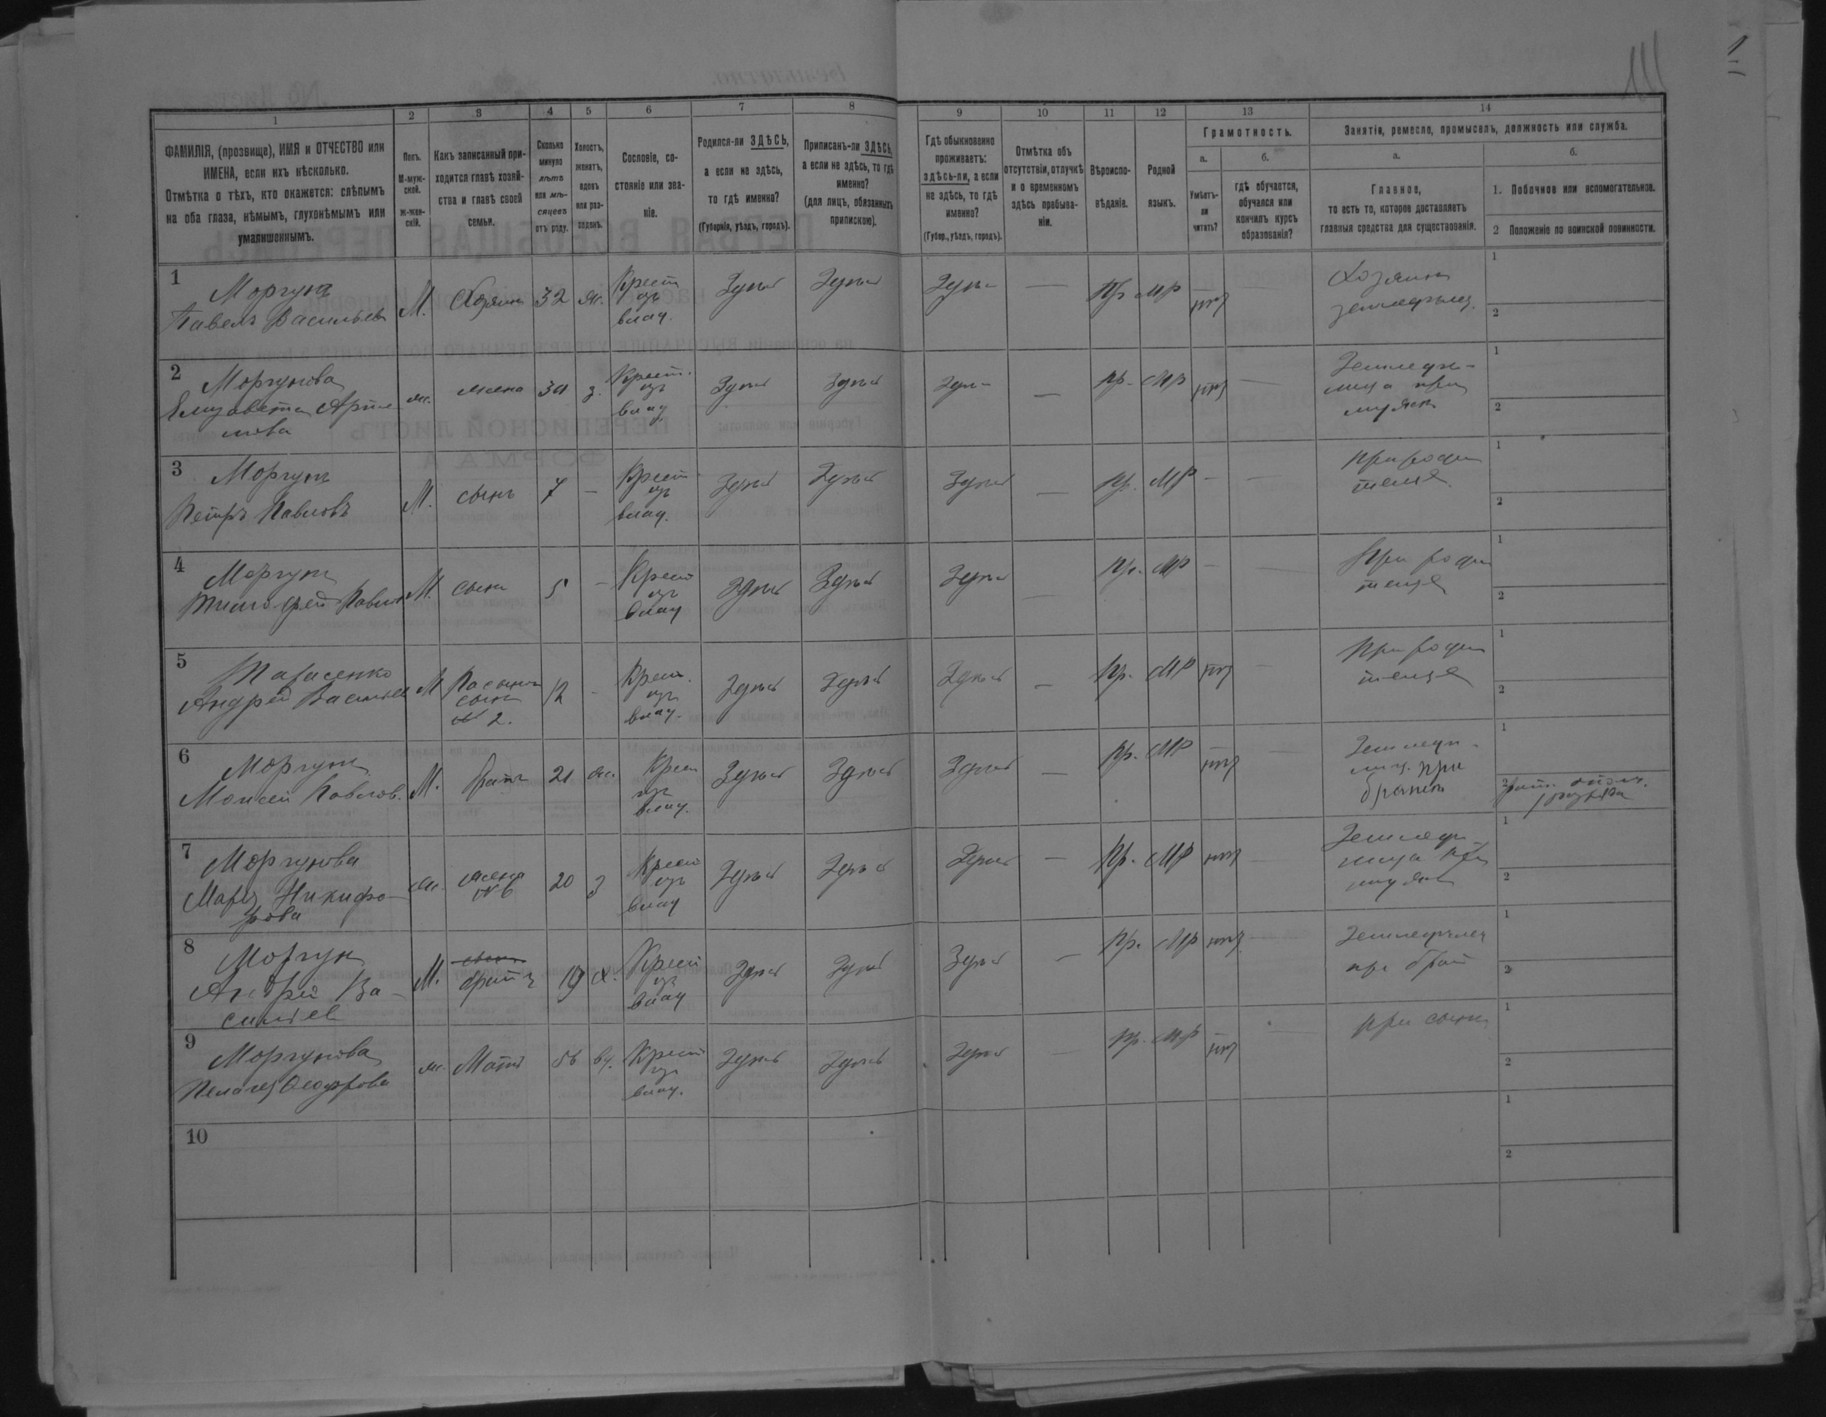 111
1
ФАМИЛІЯ, (прозвище), ИМЯ и ОТЧЕСТВО или
ИМЕНА, если ихъ нѣсколько.
Отмѣтка о тѣхъ, кто окажется: слѣпымъ
на оба глаза, нѣмымъ, глухонѣмымъ или
умалишеннымъ.
2
Полъ.
М-муж-
ской.
ж-жен-
скій.
3
Какъ записанный при-
ходится главѣ хозяй-
ства и главѣ своей
семьи.
4
Сколько
минуло
лѣтъ
или мѣ-
сяцевъ
отъ роду.
5
Холостъ,
женатъ,
вдовъ
или раз-
веденъ.
6
Сословіе, со-
стояніе или зва-
ніе.
7
Родился-ли ЗДѢСЬ,
а если не здѣсь,
то гдѣ именно?
(Губернія, уѣздъ, городъ).
8
Приписанъ-ли ЗДѢСЬ,
а если не здѣсь, то гдѣ
именно?
(для лицъ, обязанныхъ
припискою).
9
Гдѣ обыкновенно
проживаетъ:
здѣсь-ли, а если
не здѣсь, то гдѣ
именно?
(Губер., уѣздъ, городъ).
10
Отмѣтка объ
отсутствіи, отлучкѣ
и о временномъ
здѣсь пребыва-
ніи.
11
Вѣроиспо-
вѣданіе.
12
Родной
языкъ.
13
Грамотность.
а.
Умѣетъ-
ли
читать?
б.
гдѣ обучается,
обучался или
кончилъ курсъ
образованія?
14
Занятіе, ремесло, промыселъ, должность или служба.
а.
Главное,
то есть то, которое доставляетъ
главныя средства для существованія.
б.
1. Побочное или вспомогательное.
2 Положеніе по воинской повинности.
1
Моргунъ
Павелъ Васильевъ
М.
Хозяинъ
32
ж.
Крест
изъ
влад.
Здѣсь
Здѣсь
Здѣсь
—
Пр
МР
нѣтъ
Хозяинъ
земледѣлец
1
2
2
Моргунова
Елизавета Артемова
ж.
жена
30
з.
Крест.
изъ
влад
Здѣсь
Здѣсь
Здѣсь
—
пр.
МР
нѣтъ
—
Земледѣ-
лица при
мужѣ
1
2
3
Моргунъ
Петръ Павловъ
М.
сынъ
7
—
Крест
изъ
влад.
Здѣсь
Здѣсь
Здѣсь
—
Пр.
МР
—
—
При роди
теляхъ
1
2
4
Моргунъ
Тимофей Павлов
М.
сынъ
5
—
Крест
изъ
влад
Здѣсь
Здѣсь
Здѣсь
—
Пр.
МР
—
—
При роди
теляхъ
1
2
5
Тарасенко
Андрей Васильев
М
Пасынокъ
сынъ
№ 2.
12
-
Крест.
изъ
влад.
Здѣсь
Здѣсь
Здѣсь
—
Пр.
МР
нѣтъ
—
При роди
теляхъ
1
2
6
Моргунъ
Моисей Павлов.
М.
братъ
21
ж.
Крест
изъ
влад.
Здѣсь
Здѣсь
Здѣсь
—
Пр.
МР
нѣтъ
Земледѣ-
лец. при
братѣ
1
2
рат. опол.
1 разряда
7
Моргунова
Марія Никифо-
рова
ж.
жена
№ 6
20
з
Крест
изъ
влад
Здѣсь
Здѣсь
Здѣсь
—
Пр.
МР
нѣтъ
—
Земледѣ
лица при
мужѣ
1
2
8
Моргун
Андрей Ва-
сильев
М.
братъ
19
х.
Крест
изъ
влад
Здѣсь
Здѣсь
Здѣсь
—
Пр.
МР
нѣтъ
—
Земледѣлец
при брат
1
2
9
Моргунова
Пелагея Федорова
ж.
Мать
56
вд.
Крест
изъ
влад.
Здѣсь
Здѣсь
Здѣсь
—
Пр.
МР
нѣтъ
—
При сынѣ
1
2
10
1
2